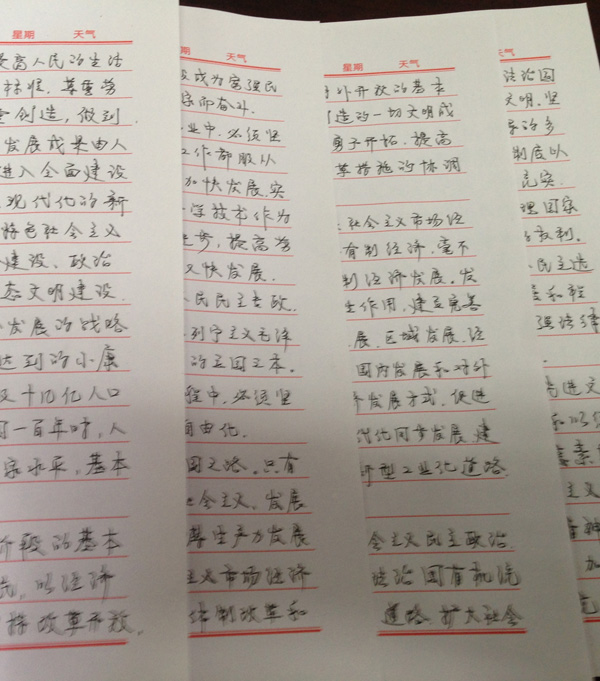 星期 天气
高人民的生活
标准. 尊重劳
创造, 做到
发展成果由人
进入全面建设
现代化的新
特色社会主义
建设、政治
态文明建设.
发展的战略
达到的小康
及十几亿人口
一百年时, 人
水平, 基本
阶段的基本
以经济
改革开放.
天气
成为富强民
而奋斗.
业中, 必须坚
工作都服从
加快发展. 实
学技术作为
进步, 提高劳
又快发展.
人民民主专政.
列宁主义毛泽
的立国之本.
程中, 必须坚
自由化.
国之路. 只有
会主义、发展
生产力发展
主义市场经济
体制改革和
星期 天气
外开放的基本
造的一切文明成
勇于开拓. 提高
革措施的协调
社会主义市场经
有制经济. 毫不
制经济发展. 发
生作用. 建立完善
展、区域发展. 注
国内发展和对外
发展方式. 促进
代化同步发展 建
新型工业化道路
会主义民主政治.
法治国有机统
道路 扩大社会
天气
法治国
文明. 坚
的多
制度以
充实.
理国家
权利.
民主选
和程
强法律
先进文
和以
素
主义
精神
加